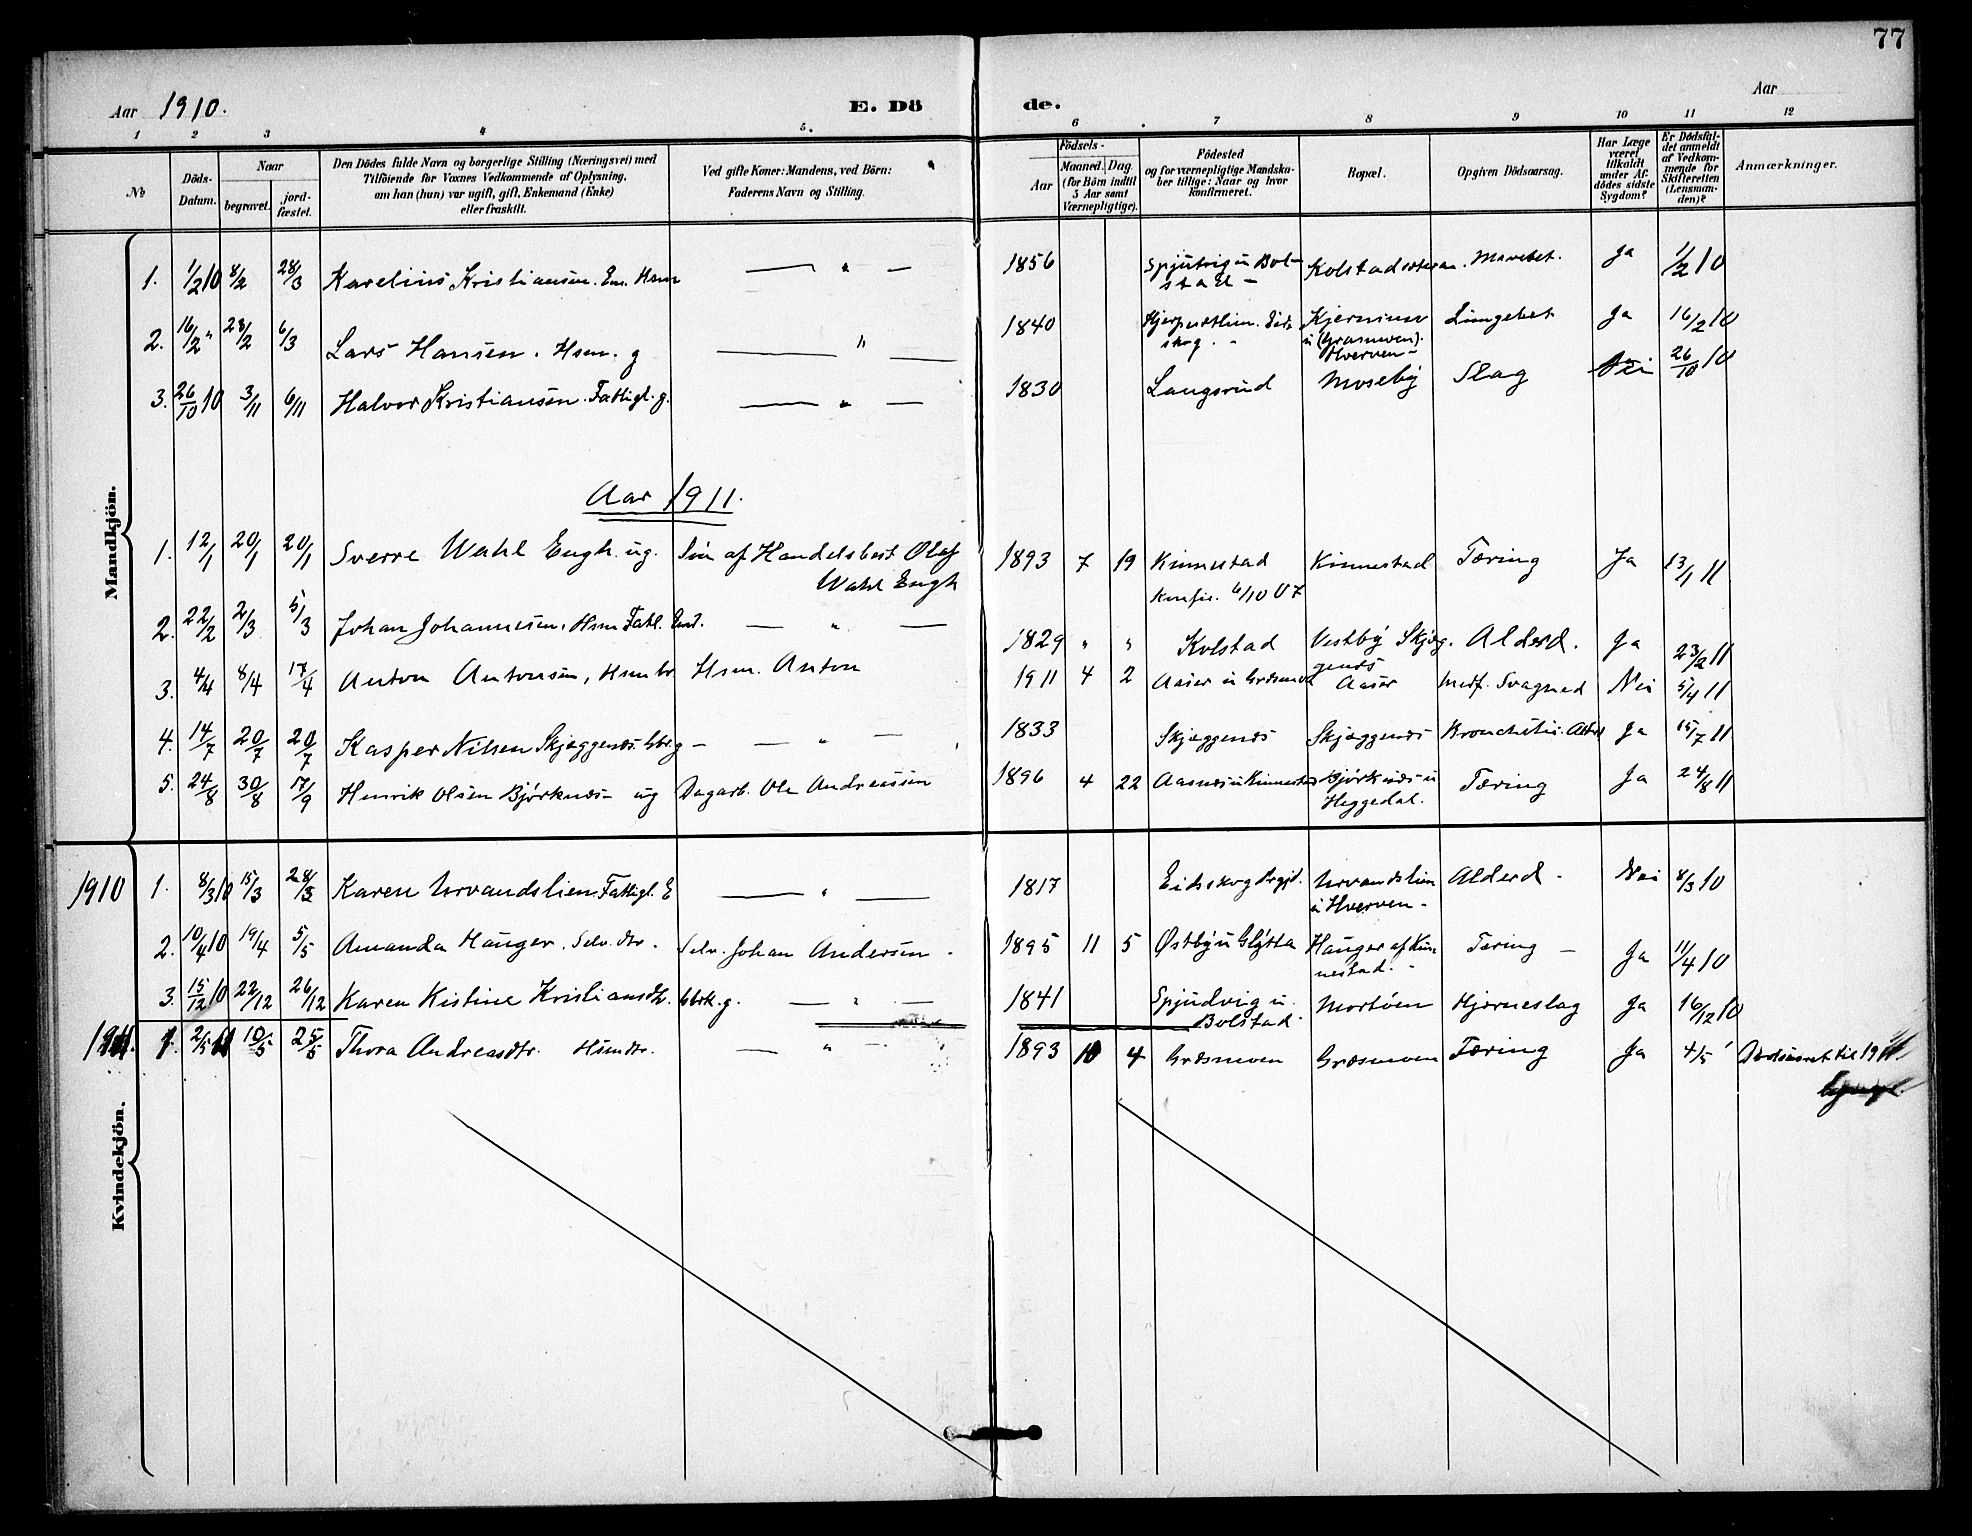 77
Aar 1910. E. Dö de. Aar
1 2 3 4 5. 6 7 8 9 10 11 12
№ Döds-Datum. Naar begravet. jord-fæstet. Den Dödes fulde Navn og borgerlige Stilling (Næringsvei) med Tilföiende for Voxnes Vedkommende af Oplysning, om han (hun) var ugift, gift, Enkemand (Enke) eller fraskilt. Ved gifte Koner: Mandens, ved Börn: Faderens Navn og Stilling. Födsels- Aar Maaned. Dag. (for Börn indtil 5 Aar samt Værnepligtige). Födested og for værnepligtige Mandska-ber tillige: Naar og hvor konfirmeret. Bopæl. Opgiven Dödsaarsag. Har Læge været tilkaldt under Af-dödes sidste Sygdom? Er Dödsfal-det anmeldt af Vedkom-mende for Skifteretten (Lensman-den)? Anmærkninger.
Mandkjön.
1. 1/2 10 8/2 28/3 Karelius Kristiansen. Em. Hsm — " — 1856 Spjutvig u Bol-stad — Kolstad Mavebet. Ja 1/2 10
2. 16/2 " 28/2 6/3 Lars Hansen. Hsm. g — " — 1840 Kjernmoen u (Græsmoen). Hverven — Lungebet Ja 16/2 10
3. 26/10 10 3/11 6/11 Halvor Kristiansen. Fattigl. g. — " — 1830 Langsrud Moseby Slag Nei 26/10 10
Aar 1911.
1. 12/1 20/1 20/1 Sverre Wahl Engh. ug. Søn af Handelsbest Olaf Wahl Engh 1893 7 19 Kinnestad Konfir. 6/10 07 Kinnestad Tæring Ja 13/1 11
2. 22/2 2/3 5/3 Johan Johannesen, Hsm Fatl. Em. — " — 1829 " " Kolstad Vestby Skjæg-genæs Alderd. Ja 23/2 11
3. 4/4 8/4 17/4 Anton Antonsen, Hsmbr. Hsm. Anton 1911 4 2 Aaser u Græsmo Aaser Medf. Svaghed Nei 5/4 11
4. 14/7 20/7 20/7 Kasper Nilsen Skjæggenæs. Gbr. g — — " — 1833 Skjæggenæs Skjæggenæs Bronchitis. Ald Ja 15/7 11
5. 24/8 30/8 17/9 Henrik Olsen Bjørknæs — ug Dagarb. Ole Andreassen 1896 4 22 Aasnæs u Kinnestad Bjørknæs u Heggedal. Tæring Ja 24/8 11
Kvindekjön.
1910 1. 8/3 10 15/3 28/3 Karen Urvandslien Fattigl. E — " — 1817 Eidskog Prgjd. Urvandslien u Hverven — Alderd — Nei 8/3 10
2. 10/4 10 19/4 5/5 Amanda Hauger. Selv. dtr. Selv. Johan Andersen — 1895 11 5 Østby u Glötta Hauger af Kin-nestad. Tæring — Ja 11/4 10
3. 15/12 10 22/12 26/12 Karen Kistine Kristiansdt. Gbrk. g. — " — 1841 Spjudvig u. Bolstad Mortöen Hjerneslag Ja 16/12 10
1911. 1. 2/5 11 10/5 25/5 Thora Andreasdtr. Hsmdtr. — " — 1893 10 4 Græsmoen Græsmoen Tæring Ja 4/5 Dødsanmt til 1911